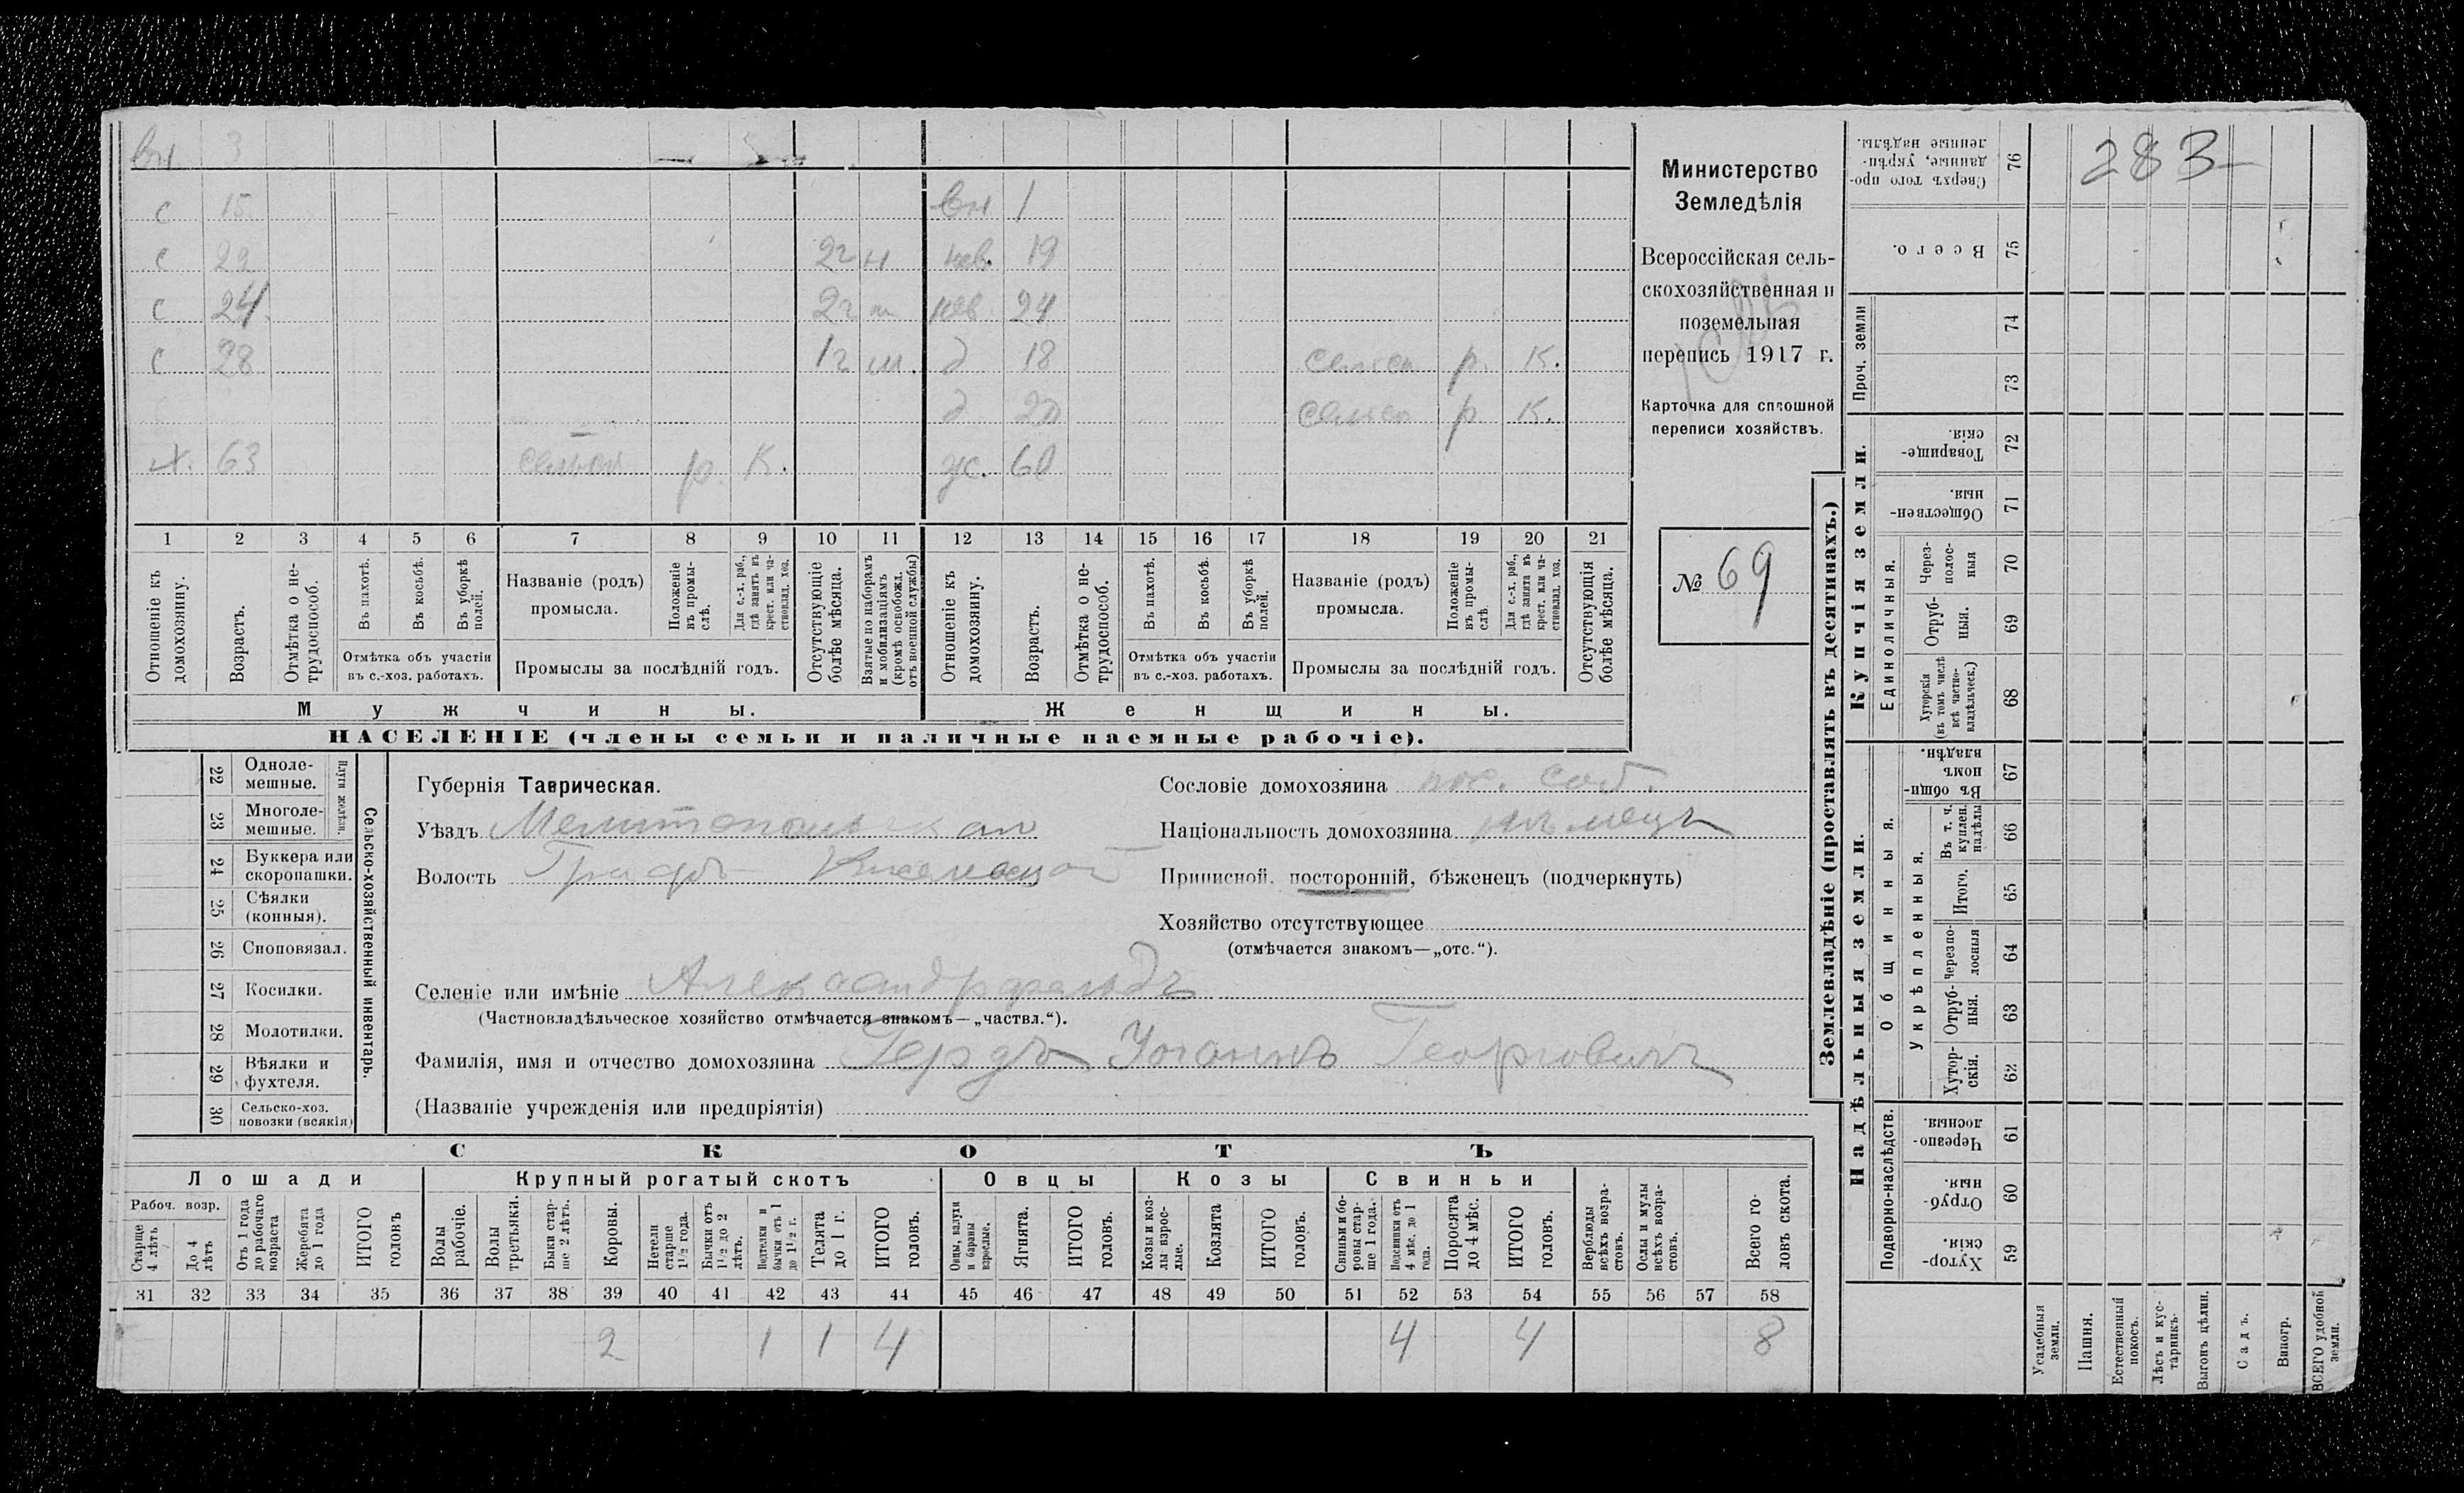 вн. 3
с 15 вн 1
с 22 2г н нев. 19
с 24 2г нев 24
с 28 1г д 18 р. К.
д 20 р К.
х. 63 р. К. ж. 60
1 2 3 4 5 6 7 8 9 10 11 12 13 14 15 16 17 18 19 20 21
Отношеніе къ домохозяину.
Возрастъ.
Отмѣтка о не-трудоспособ.
Въ пахотѣ.
Въ косьбѣ.
Въ уборкѣ полей.
Отмѣтка объ участіи въ с.-хоз. работахъ.
Названіе (родъ) промысла.
Положеніе въ промы-слѣ.
Для с.-х. раб., гдѣ занятъ въ крест. или ча-стновлад. хоз.
Промыслы за послѣдній годъ.
Отсутствующіе болѣе мѣсяца.
Взятые по наборамъ и мобилизаціямъ (кромѣ освобожд. отъ военной службы)
Отношеніе къ домохозяину.
Возрастъ.
Отмѣтка о не-трудоспособ.
Въ пахотѣ.
Въ косьбѣ.
Въ уборкѣ полей.
Отмѣтка объ участіи въ с.-хоз. работахъ.
Названіе (родъ) промысла.
Положеніе въ промы-слѣ.
Для с.-х. раб., гдѣ занята въ крест. или ча-стновлад. хоз.
Промыслы за послѣдній годъ.
Отсутствующія болѣе мѣсяца.
Мужчины.
Женщины.
НАСЕЛЕНІЕ (члены семьи и наличные наемные рабочіе).
Министерство
Земледѣлія
Всероссійская сель-
скохозяйственная и
поземельная
перепись 1917 г.
Карточка для сплошной
переписи хозяйствъ.
№ 69
22 Одноле-мешные.
23 Многоле-мешные.
Плуги желѣзн.
24 Буккера или скоропашки.
25 Сѣялки (конныя).
26 Сноповязал.
27 Косилки.
28 Молотилки.
29 Вѣялки и фухтеля.
30 Сельско-хоз. повозки (всякія)
Сельско-хозяйственный инвентарь.
Губернія Таврическая.
Уѣздъ Мелитопольскій
Волость
Сословіе домохозяина пос. соб.
Національность домохозяина нѣмецъ
Приписной, посторонній, бѣженецъ (подчеркнуть)
Хозяйство отсутствующее
(отмѣчается знакомъ—„отс.“).
Селеніе или имѣніе Александрфельдъ
(Частновладѣльческое хозяйство отмѣчается знакомъ—„частвл.“).
Фамилія, имя и отчество домохозяина Гердъ Іоганнъ Георговичъ
(Названіе учрежденія или предпріятія)
СКОТЪ
Лошади
Крупный рогатый скотъ
Овцы
Козы
Свиньи
Рабоч. возр.
Старше 4 лѣтъ
До 4 лѣтъ
Отъ 1 года до рабочаго возраста
Жеребята до 1 года
ИТОГО головъ
Волы рабочіе.
Волы третьяки.
Быки стар-ше 2 лѣтъ.
Коровы.
Нетели старше 1½ года.
Бычки отъ 1½ до 2 лѣтъ.
Подтелки и бычки отъ 1 до 1½ г.
Телята до 1 г.
ИТОГО головъ.
Овцы, валухи и бараны взрослые.
Ягнята.
ИТОГО головъ.
Козы и коз-лы взрос-лые.
Козлята
ИТОГО головъ.
Свиньи и бо-ровы стар-ше 1 года.
Подсвинки отъ 4 мѣс. до 1 года.
Поросята до 4 мѣс.
ИТОГО головъ.
Верблюды всѣхъ возра-стовъ.
Ослы и мулы всѣхъ возра-стовъ.
Всего го-ловъ скота.
31 32 33 34 35 36 37 38 39 40 41 42 43 44 45 46 47 48 49 50 51 52 53 54 55 56 57 58
2 1 1 4 4 4 8
Землевладѣніе (проставлять въ десятинахъ.)
Купчія земли.
Надѣльныя земли.
283
76 Сверхъ того про-данные, укрѣп-ленные надѣлы.
75 Всего.
Проч. земли
74
73
72 Товарище-скія.
71 Обществен-ныя.
Единоличныя.
70 Через-полос-ныя
69 Отруб-ныя.
68 Хуторскія (въ томъ числѣ всѣ частно-владѣльческ.)
Общинныя.
67 Въ общи-номъ владѣн.
Укрѣпленныя.
66 Въ т. ч. куплен. надѣлы
65 Итого.
64 Черезпо-лосныя
63 Отруб-ныя.
62 Хутор-скія.
Подворно-наслѣдств.
61 Черезпо-лосныя.
60 Отруб-ныя.
59 Хутор-скія.
Усадебныя земли.
Пашня.
Естественный покосъ.
Лѣсъ и кус-тарникъ.
Выгонъ цѣлин.
Садъ.
Виногр.
ВСЕГО удобной земли.